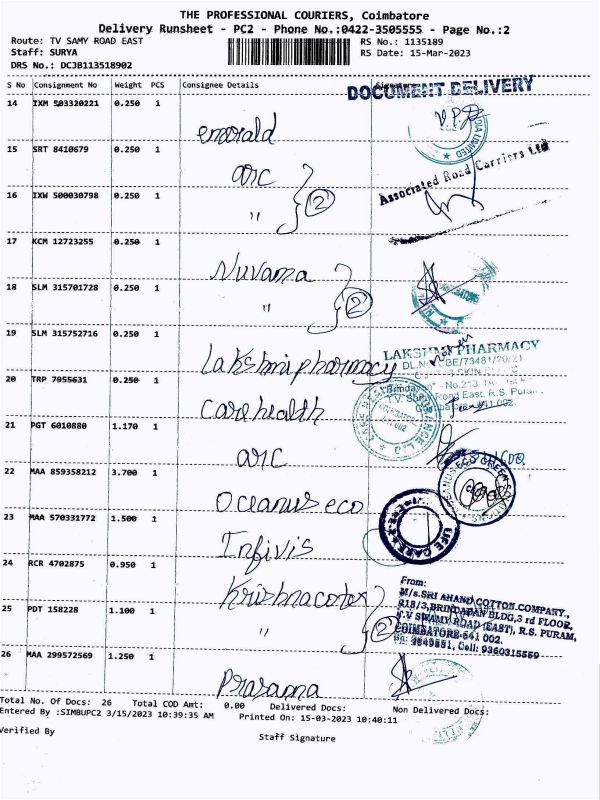 THE PROFESSIONAL COURIERS, Coimbatore
Delivery Runsheet - PC2 - Phone No.:0422-3505555 - Page No.:2
Route: TV SAMY ROAD EAST RS No.: 1135189
Staff: SURYA RS Date: 15-Mar-2023
DRS No.: DCJB113518902
S No Consignment No Weight PCS Consignee Details
DOCUMENT DELIVERY
14 IXM 503320221 0.250 1
emerald
15 SRT 8410679 0.250 1
arc
Associated Road Carriers Ltd
16 IXW 500030798 0.250 1
" 2
17 KCM 12723255 0.250 1
Nuvama
18 SLM 315701728 0.250 1
" 2
19 SLM 315752716 0.250 1
Lakshmi pharmacy
LAKSHMI PHARMACY
20 TRP 7055631 0.250 1
Care health
21 PGT 6010880 1.170 1
arc
22 MAA 859358212 3.700 1
Oceanus eco
23 MAA 570331772 1.500 1
Infivis
LIFE CARE
24 RCR 4702875 0.950 1
From:
M/s.SRI AHAND COTTON COMPANY.,
418/3,BRINDABAN BLDG,3 rd FLOOR,
T.V SWAMY ROAD (EAST), R.S. PURAM,
COIMBATORE-641 002.
Cell: 9360315569
25 PDT 158228 1.100 1
" 2
26 MAA 299572569 1.250 1
Total No. Of Docs: 26 Total COD Amt: 0.00 Delivered Docs: Non Delivered Docs:
Entered By :SIMBUPC2 3/15/2023 10:39:35 AM Printed On: 15-03-2023 10:40:11
Verified By Staff Signature